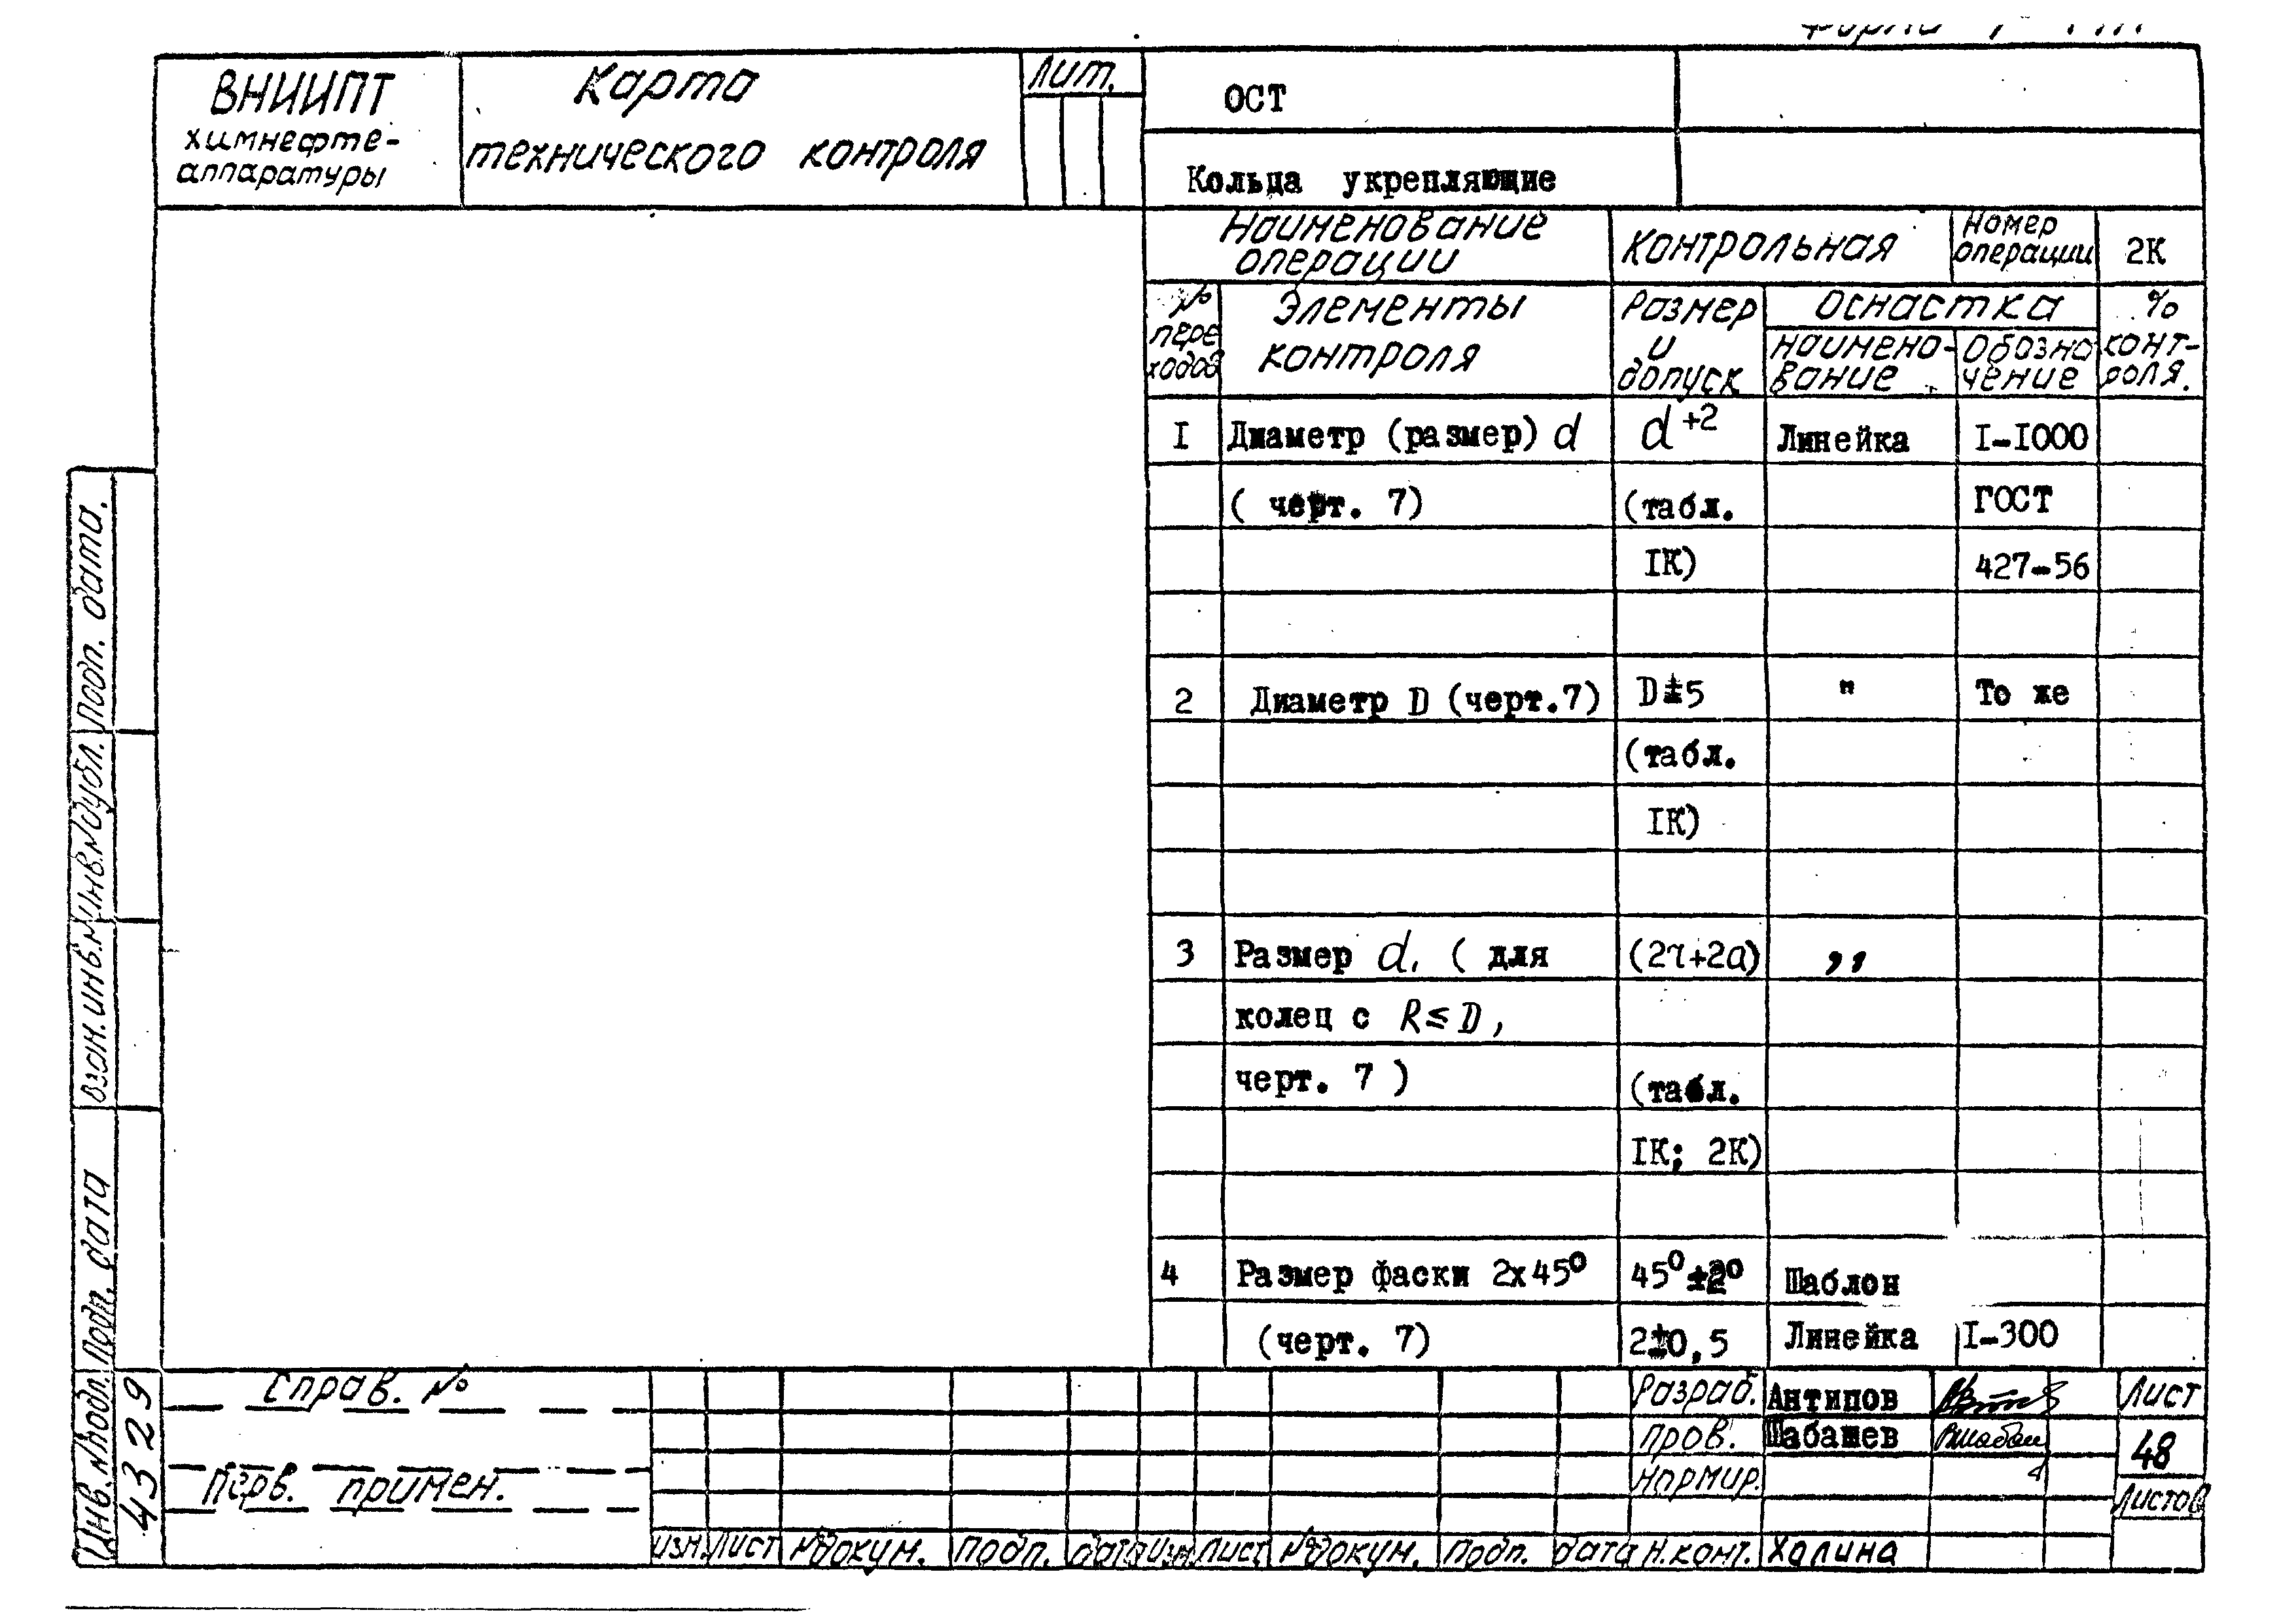 Форма
ВНИИПТ
химнефте-
аппаратуры
Карта
технического контроля
Лит.
ОСТ
Кольца укрепляющие
Наименование
операции
Контрольная
Номер
операции
2К
№
пере
ходов
Элементы
контроля
Размер
и
допуск
Оснастка
Наимено-
вание
Обозна
чение
%
конт-
роля.
I Диаметр (размер) d d +2 Линейка I-I000
( черт. 7) (табл. ГОСТ
IК) 427-56
2 Диаметр D (черт.7) D±5 " То же
(табл.
IК)
3 Размер d₁ ( для (2r+2a) ,,
колец с R≤D,
черт. 7 ) (табл.
IК; 2К)
4 Размер фаски 2х45° 45°±2° Шаблон
(черт. 7) 2±0,5 Линейка I-300
Подп. дата.
Инв.№дубл.
Взан.инв.№
Подп. дата
Инв.№подл.
43329
Справ. №
Перв. примен.
Изм. Лист №докум. Подп. Дата Изм Лист №докум. Подп. Дата
Разраб. Антипов
Пров. Шабашев
Нормир.
Н.конт. Халина
Лист
48
Листов